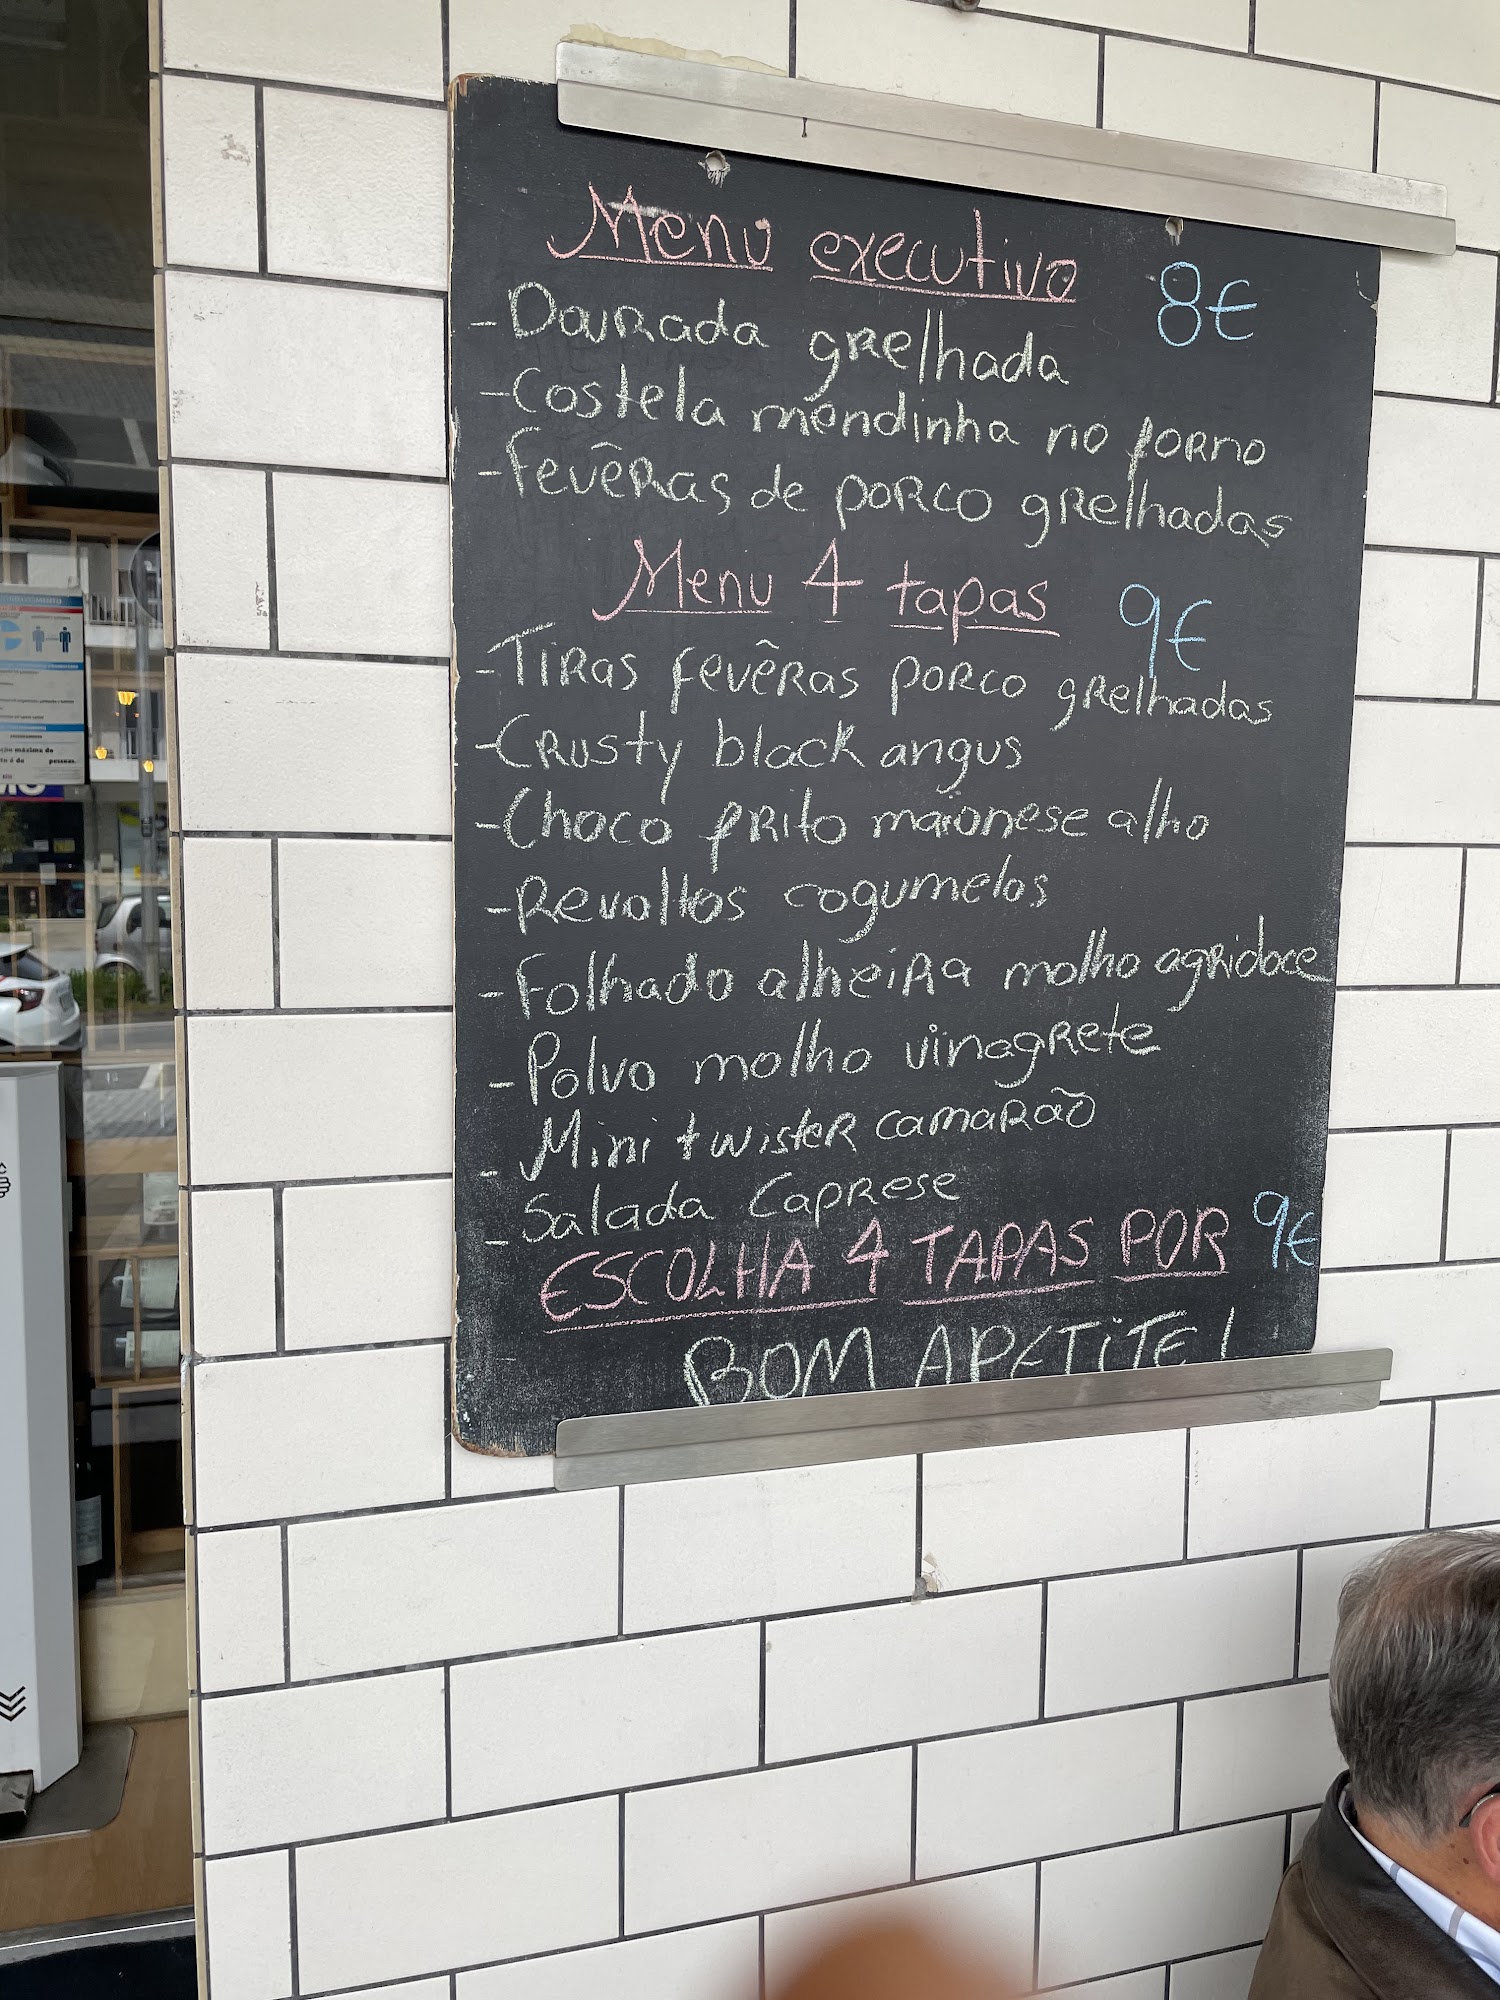 Menu executivo 8€
- Dourada grelhada
- Costela mendinha no forno
- Fevêras de porco grelhadas
Menu 4 tapas 9€
- Tiras fevêras porco grelhadas
- Crusty black angus
- Choco frito maionese alho
- Revoltos cogumelos
- Folhado alheira molho agridoce
- Polvo molho vinagrete
- Mini twister camarão
- Salada Caprese
ESCOLHA 4 TAPAS POR 9€
BOM APETITE!